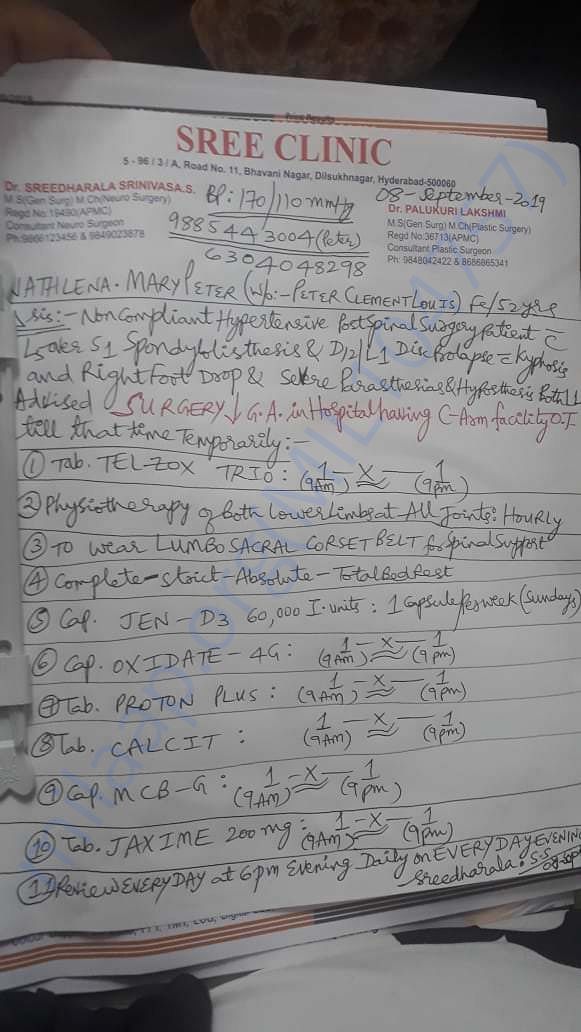 SREE CLINIC
5 - 96 / 3 / A, Road No. 11, Bhavani Nagar, Dilsukhnagar, Hyderabad-500060
Dr. SREEDHARALA SRINIVASA.S.
M.S(Gen Surg) M.Ch(Neuro Surgery)
Regd No:19490(APMC)
Consultant Neuro Surgeon
Ph:9866123456 & 9849023878
BP: 170/110 mmHg
9885443004 (Peter)
6304048298
08-September-2019
Dr. PALUKURI LAKSHMI
M.S(Gen Surg) M.Ch(Plastic Surgery)
Regd No:36713(APMC)
Consultant Plastic Surgeon
Ph: 9848042422 & 8686865341
NATHLENA. MARY PETER (W/o:- PETER CLEMENT LOUIS) Fe/52yrs
sis:- Non Compliant Hypertensive Post Spinal Surgery Patient c̄
L5 over S1 Spondylolisthesis & D12/L1 Disc Prolapse = Kyphosis
and Right Foot Drop & Severe Parasthesias & Hyposthesis Both LL
Advised SURGERY ↓ G.A. in Hospital having C-Arm facility O.T.
till that time Temporarily:-
① Tab. TEL-ZOX TRIO: 1 (9AM) — X — 1 (9pm)
② Physiotherapy of Both Lower Limbs at All Joints: HOURLY
③ TO WEAR LUMBO SACRAL CORSET BELT for Spinal Support
④ Complete-Strict-Absolute-Total Bed Rest
⑤ Cap. JEN-D3 60,000 I.units: 1 Capsule Per week (Sundays)
⑥ Cap. OXIDATE-4G: 1 (9AM) — X — 1 (9pm)
⑦ Tab. PROTON PLUS: 1 (9AM) — X — 1 (9pm)
⑧ Tab. CALCIT: 1 (9AM) — X — 1 (9pm)
⑨ Cap. MCB-G: 1 (9AM) — X — 1 (9pm)
⑩ Tab. JAXIME 200 mg: 1 (9AM) — X — 1 (9pm)
⑪ Review EVERY DAY at 6pm Evening Daily on EVERY DAY EVENING
Sreedharala.S.S